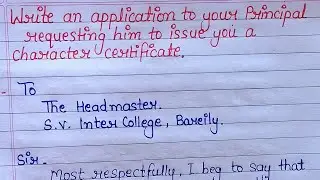 Write an application to your Principal
requesting him to issue you a
character certificate.
To
The Headmaster.
S.V. Inter College, Bareily.
Sir.
Most respectfully, I beg to say that